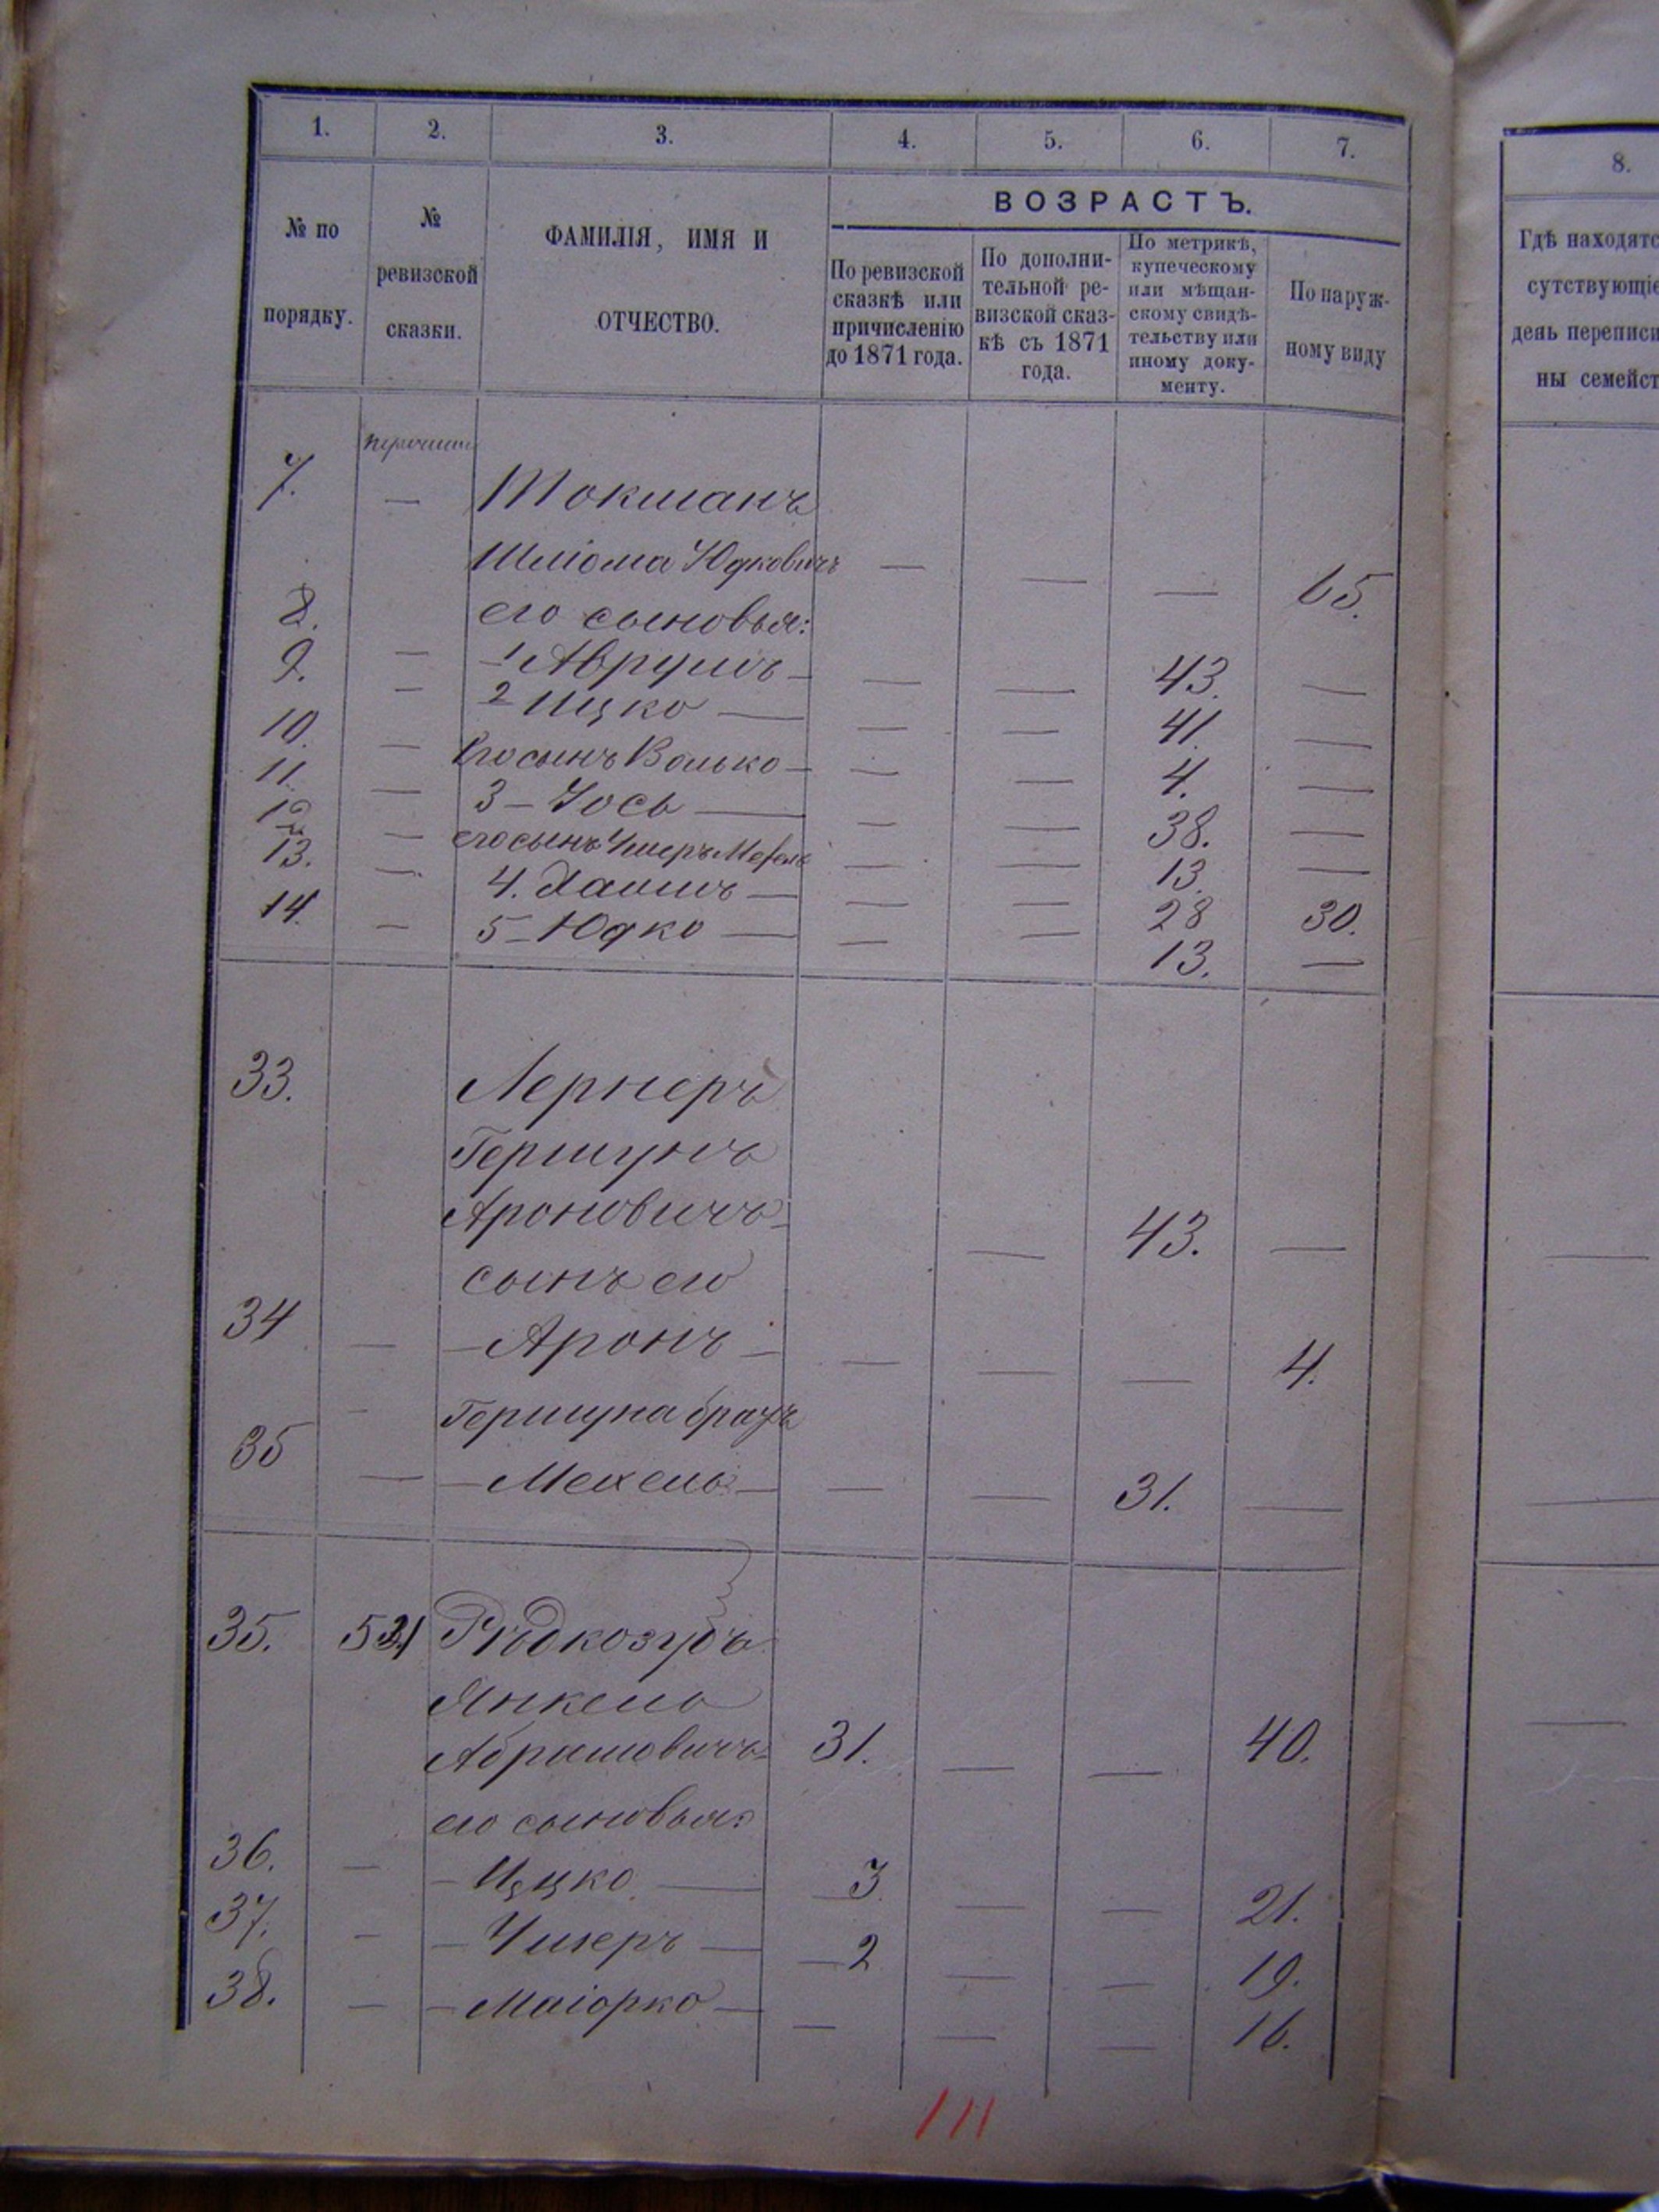 1. 2. 3. 4. 5. 6. 7.
№ по порядку.
№ ревизской сказки.
ФАМИЛІЯ, ИМЯ И ОТЧЕСТВО.
ВОЗРАСТЪ.
По ревизской сказкѣ или причисленію до 1871 года.
По дополнительной ревизской сказкѣ съ 1871 года.
По метрикѣ, купеческому или мѣщанскому свидѣтельству или иному документу.
По наружному виду
7. — Токманъ
Шліома Юдковичъ — — — 65.
8. его сыновья:
9. — 1 Аврумъ — — — 43. —
— 2 Ицко — — — 41. —
10. — Его сынъ Волько — — — 4. —
11. — 3 — Іось — — — 38. —
12 — его сынъ — — 13. —
13. — 4. Хаимъ — — — 28 30.
14. — 5 — Юдко — — — 13. —
33. Лернеръ
Гершунъ
Ароновичъ — — 43. —
сынъ его
34 — — Аронъ — — — — 4.
— Гершуна братъ
35 — — Мехель — — — 31. —
35. 521 Рѣдкозубъ
Янкель
Абрамовичъ 31. — — 40.
его сыновья:
36. — — Ицко — 3 — — 21.
37. — — Чикеръ — — 2 — — 19.
38. — — Маіорко — — — — 16.
111
8.
Гдѣ находятс
сутствующіе
день переписи
ны семейст